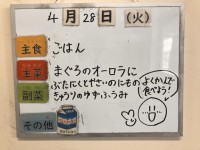 4月28日(火)
主食 ごはん
主菜 まぐろのオーロラに
副菜 ぶたにくとやさいのにもの
きゅうりのゆずふうみ
よくかんで
食べよう!
その他